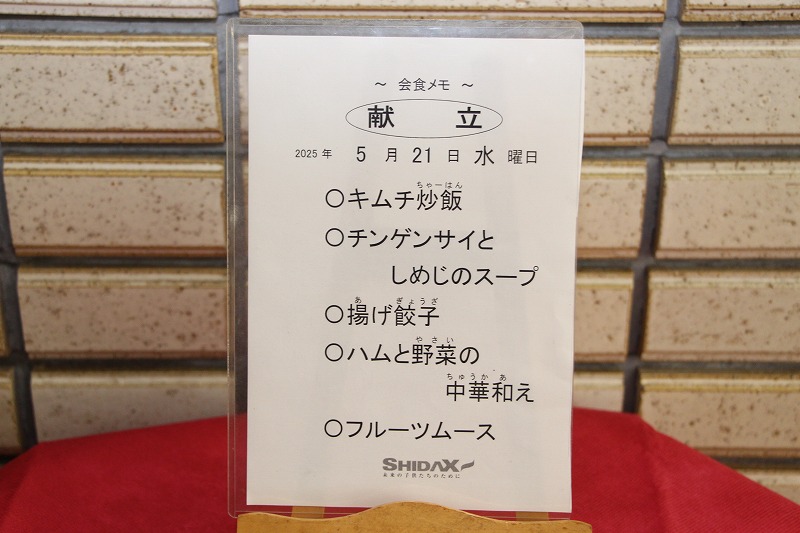 ～ 会食メモ ～
献 立
2025 年 5 月 21 日 水 曜日
ちゃーはん
○キムチ炒飯
○チンゲンサイと
しめじのスープ
あ ぎょうざ
○揚げ餃子
やさい
○ハムと野菜の
ちゅうか あ
中華和え
○フルーツムース
SHIDAX
未来の子供たちのために